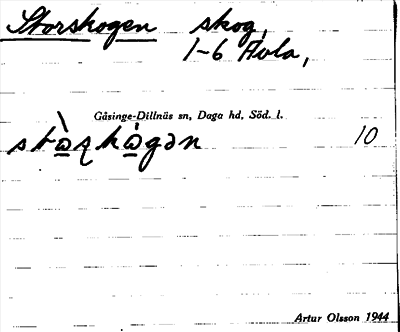 Storskogen skog,
1-6 Avla,
Gåsinge-Dillnäs sn, Daga hd, Söd. l.
10
Artur Olsson 1944